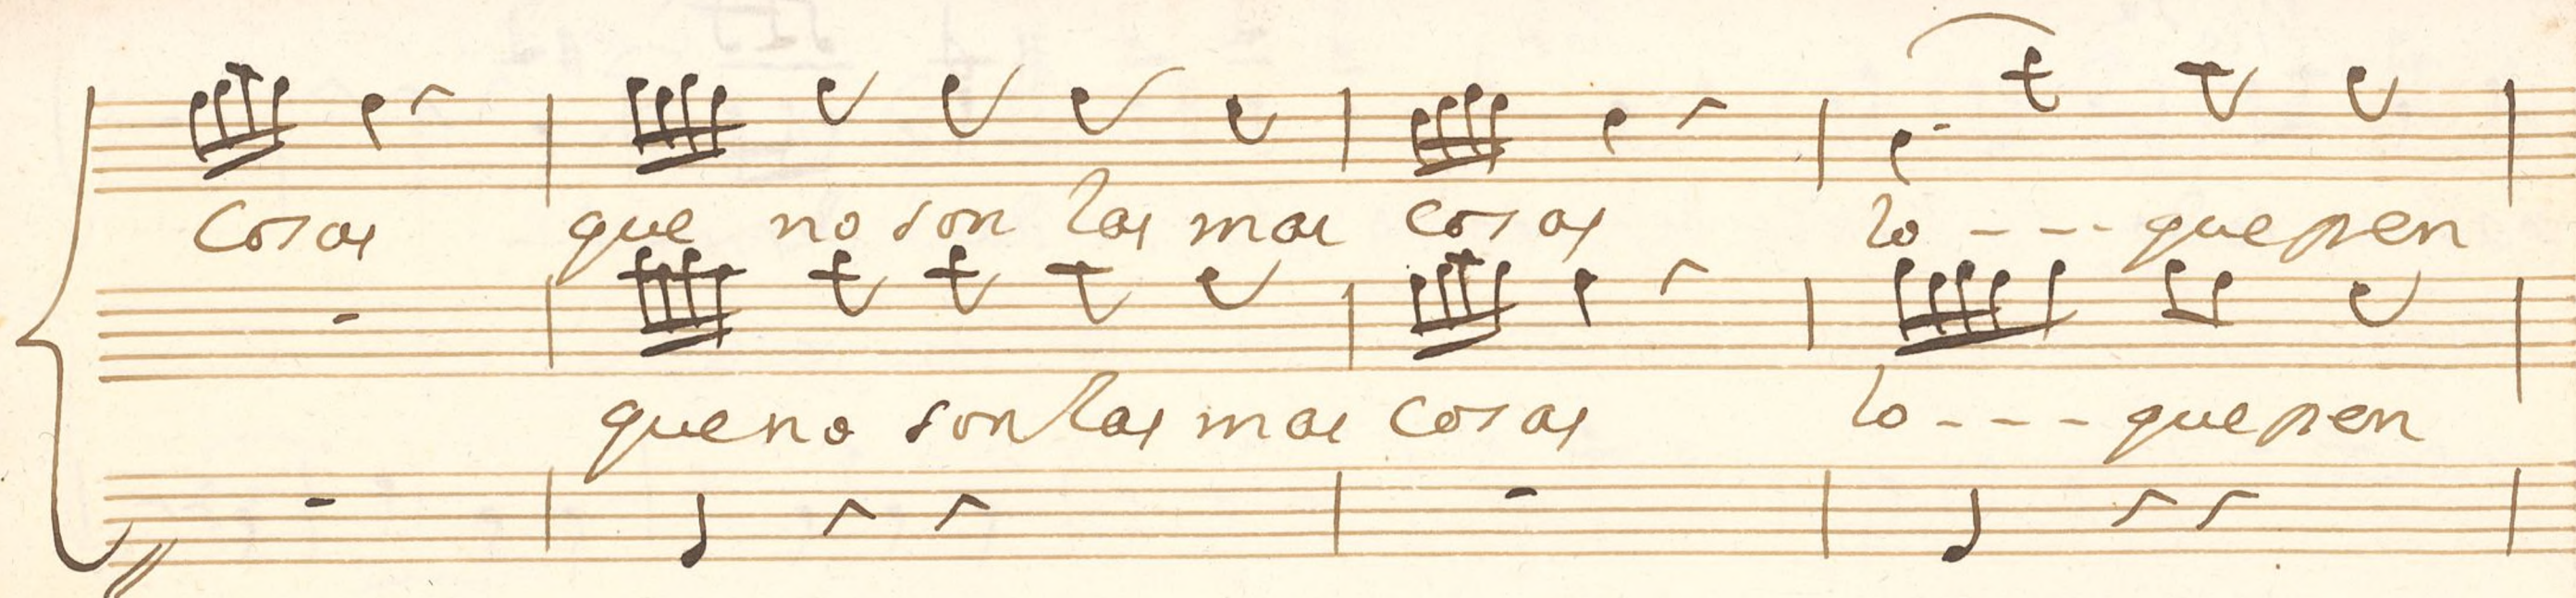 Cosas que no son las mas cosas lo - - - que pen
que no son las mas cosas lo - - - que pen